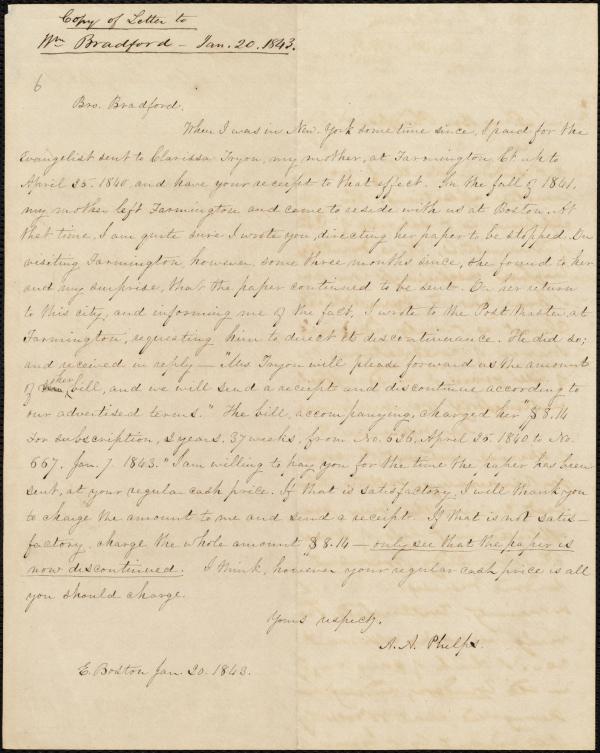 Copy of Letter to
Wm Bradford - Jan. 20. 1843.
6
Bro. Bradford,
When I was in New-York some time since, I paid for the
Evangelist sent to Clarissa Tryon, my mother, at Farmington Ct. up to
April 25. 1840, and have your receipt to that effect. In the fall of 1841,
my mother left Farmington and came to reside with us at Boston. At
that time, I am quite sure I wrote you, directing her paper to be stopped. On
visiting Farmington, however, some three months since, she found to her
and my surprise, that the paper continued to be sent. On her return
to this city, and informing me of the fact, I wrote to the Post Master, at
Farmington, requesting him to direct its discontinuance. He did so;
and received in reply - "Mrs Tryon will please forward us the amount
of her bill, and we will send a receipt and discontinue according to
our advertised terms." The bill, accompanying, charged her "$8.14
for subscription, 2 years. 37 weeks, from No. 526. April 25. 1840 to No.
667. Jan. 7. 1843." I am willing to pay you for the time the paper has been
sent, at your regular cash price. If that is satisfactory, I will thank you
to charge the amount to me and send a receipt. If that is not satis-
factory, charge the whole amount "$8.14 - only see that the paper is
now discontinued. I think, however your regular cash price is all
you should charge.
Yours respecty.
A. A. Phelps.
E. Boston Jan. 20. 1843.